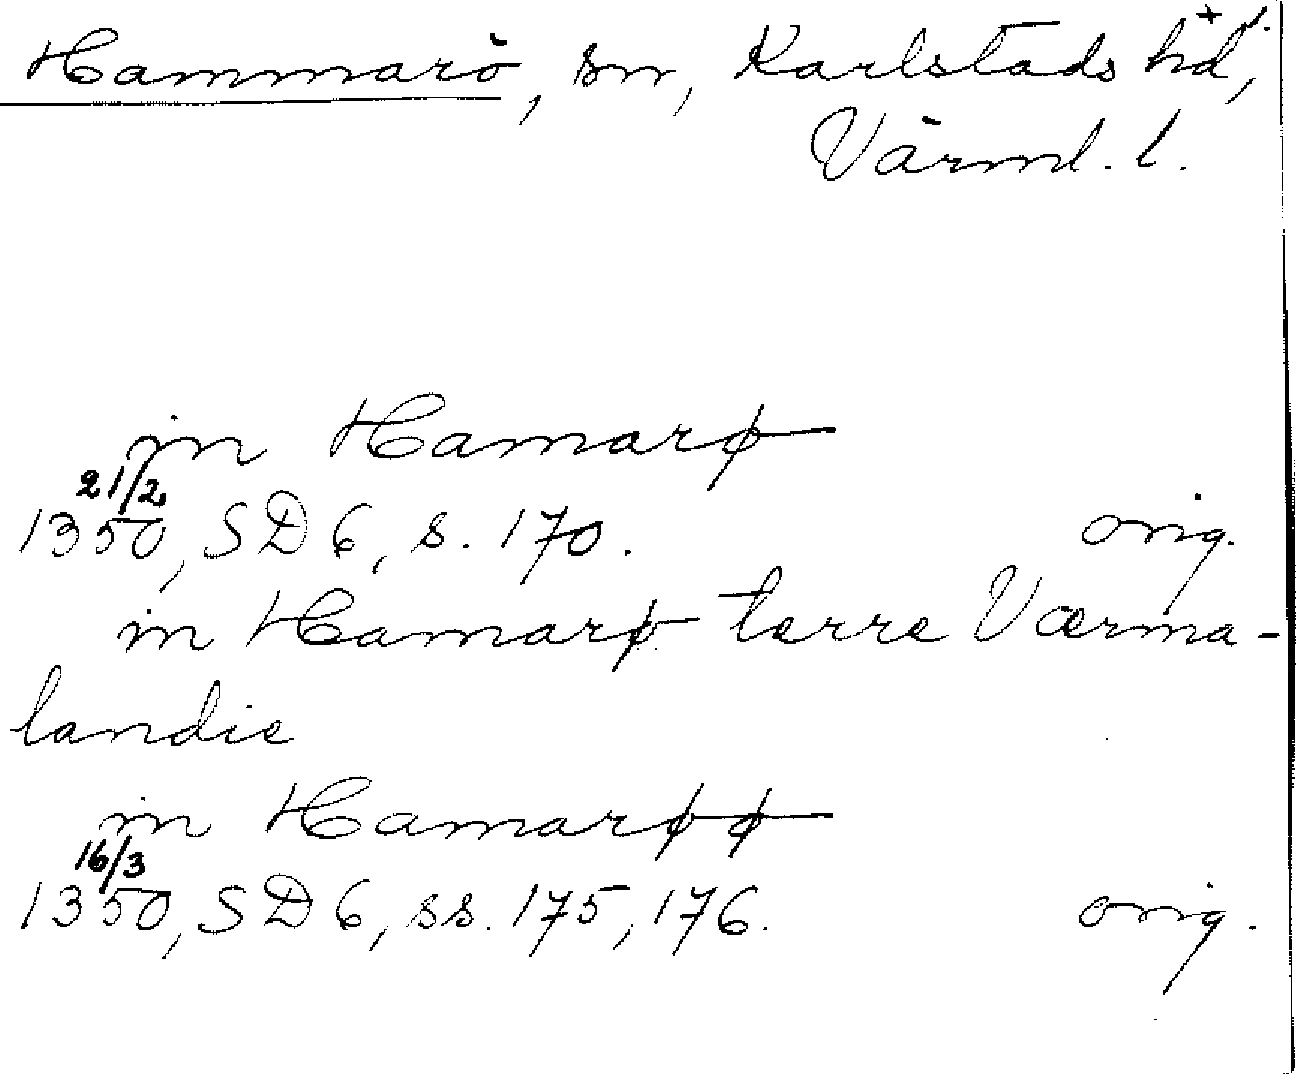 Hammarö, sn, Karlstads hd,
Värml. l.
in Hamarø
21/2
1350, SD 6, s. 170. orig.
in Hamarø terre Værma-
landie
in Hamarøø
16/3
1350, SD 6, ss. 175, 176. orig.